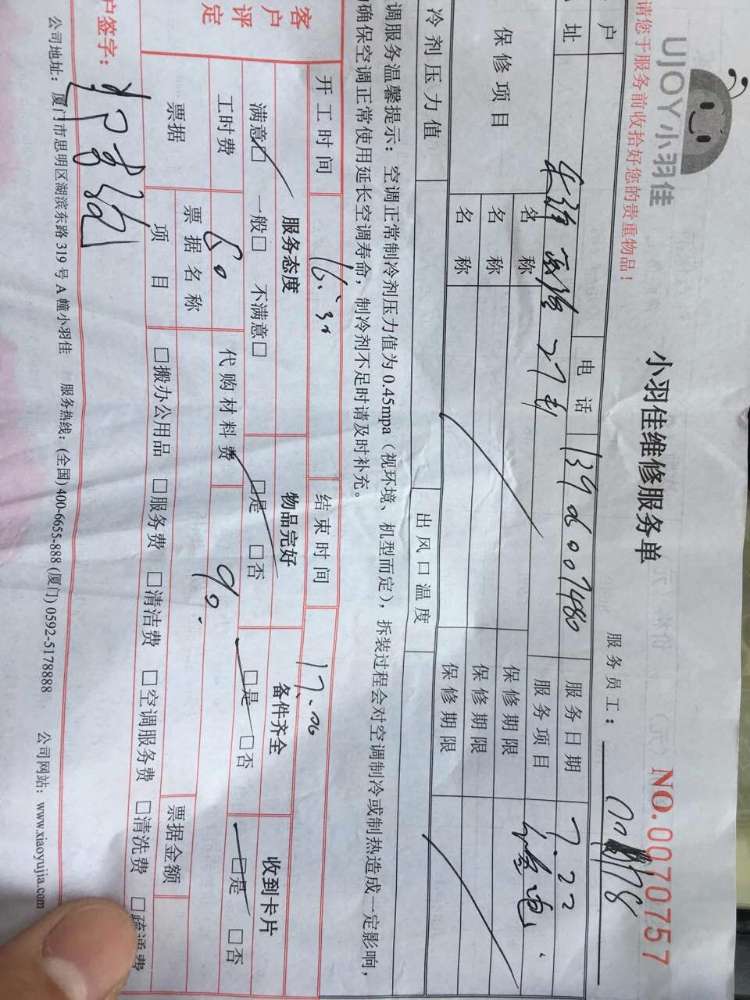 UJOY小羽佳
小羽佳维修服务单
NO.0070757
请您于服务前收拾好您的贵重物品！
服务员工：
户 电 话 服务日期 7.22
址 服务项目
保修项目 名 称 保修期限
名 称 保修期限
名 称 保修期限
冷剂压力值 出风口温度
调服务温馨提示：空调正常制冷剂压力值为 0.45mpa（视环境、机型而定），拆装过程会对空调制冷或制热造成一定影响，
确保空调正常使用延长空调寿命，制冷剂不足时请及时补充。
开工时间 16:30 结束时间 17:00
客户评定 服务态度 物品完好 备件齐全 收到卡片
满意□ 一般□ 不满意□ □是 □否 □是 □否 □是 □否
工时费 80 代购材料费 90.
票据 票据名称 票据金额
项 目 □搬办公用品 □服务费 □清洁费 □空调服务费 □清洗费 □疏通费
户签字：
公司地址：厦门市思明区湖滨东路 319 号 A 幢小羽佳 服务热线：(全国) 400-6655-888 (厦门) 0592-5178888 公司网站：www.xiaoyujia.com